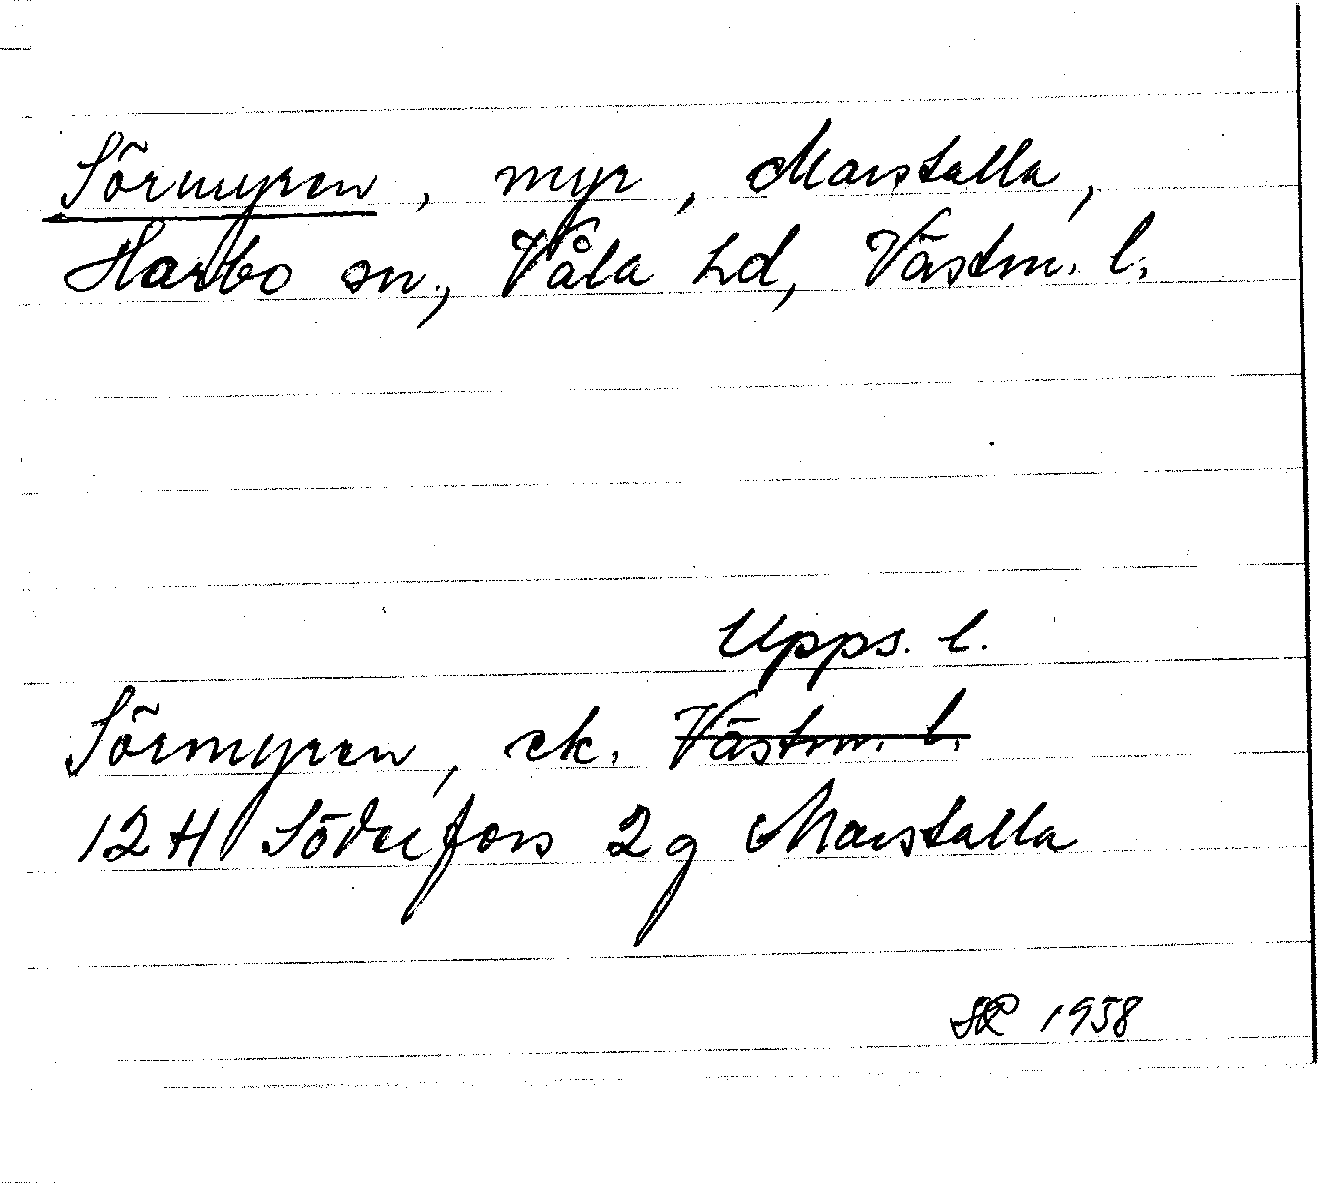 Sörmyren, myr, Marstalla,
Harbo sn., Våla hd, Västm. l.
Upps. l.
Sörmyren, ek. Västm. l.
12 H Söderfors 2 g Marstalla
1958